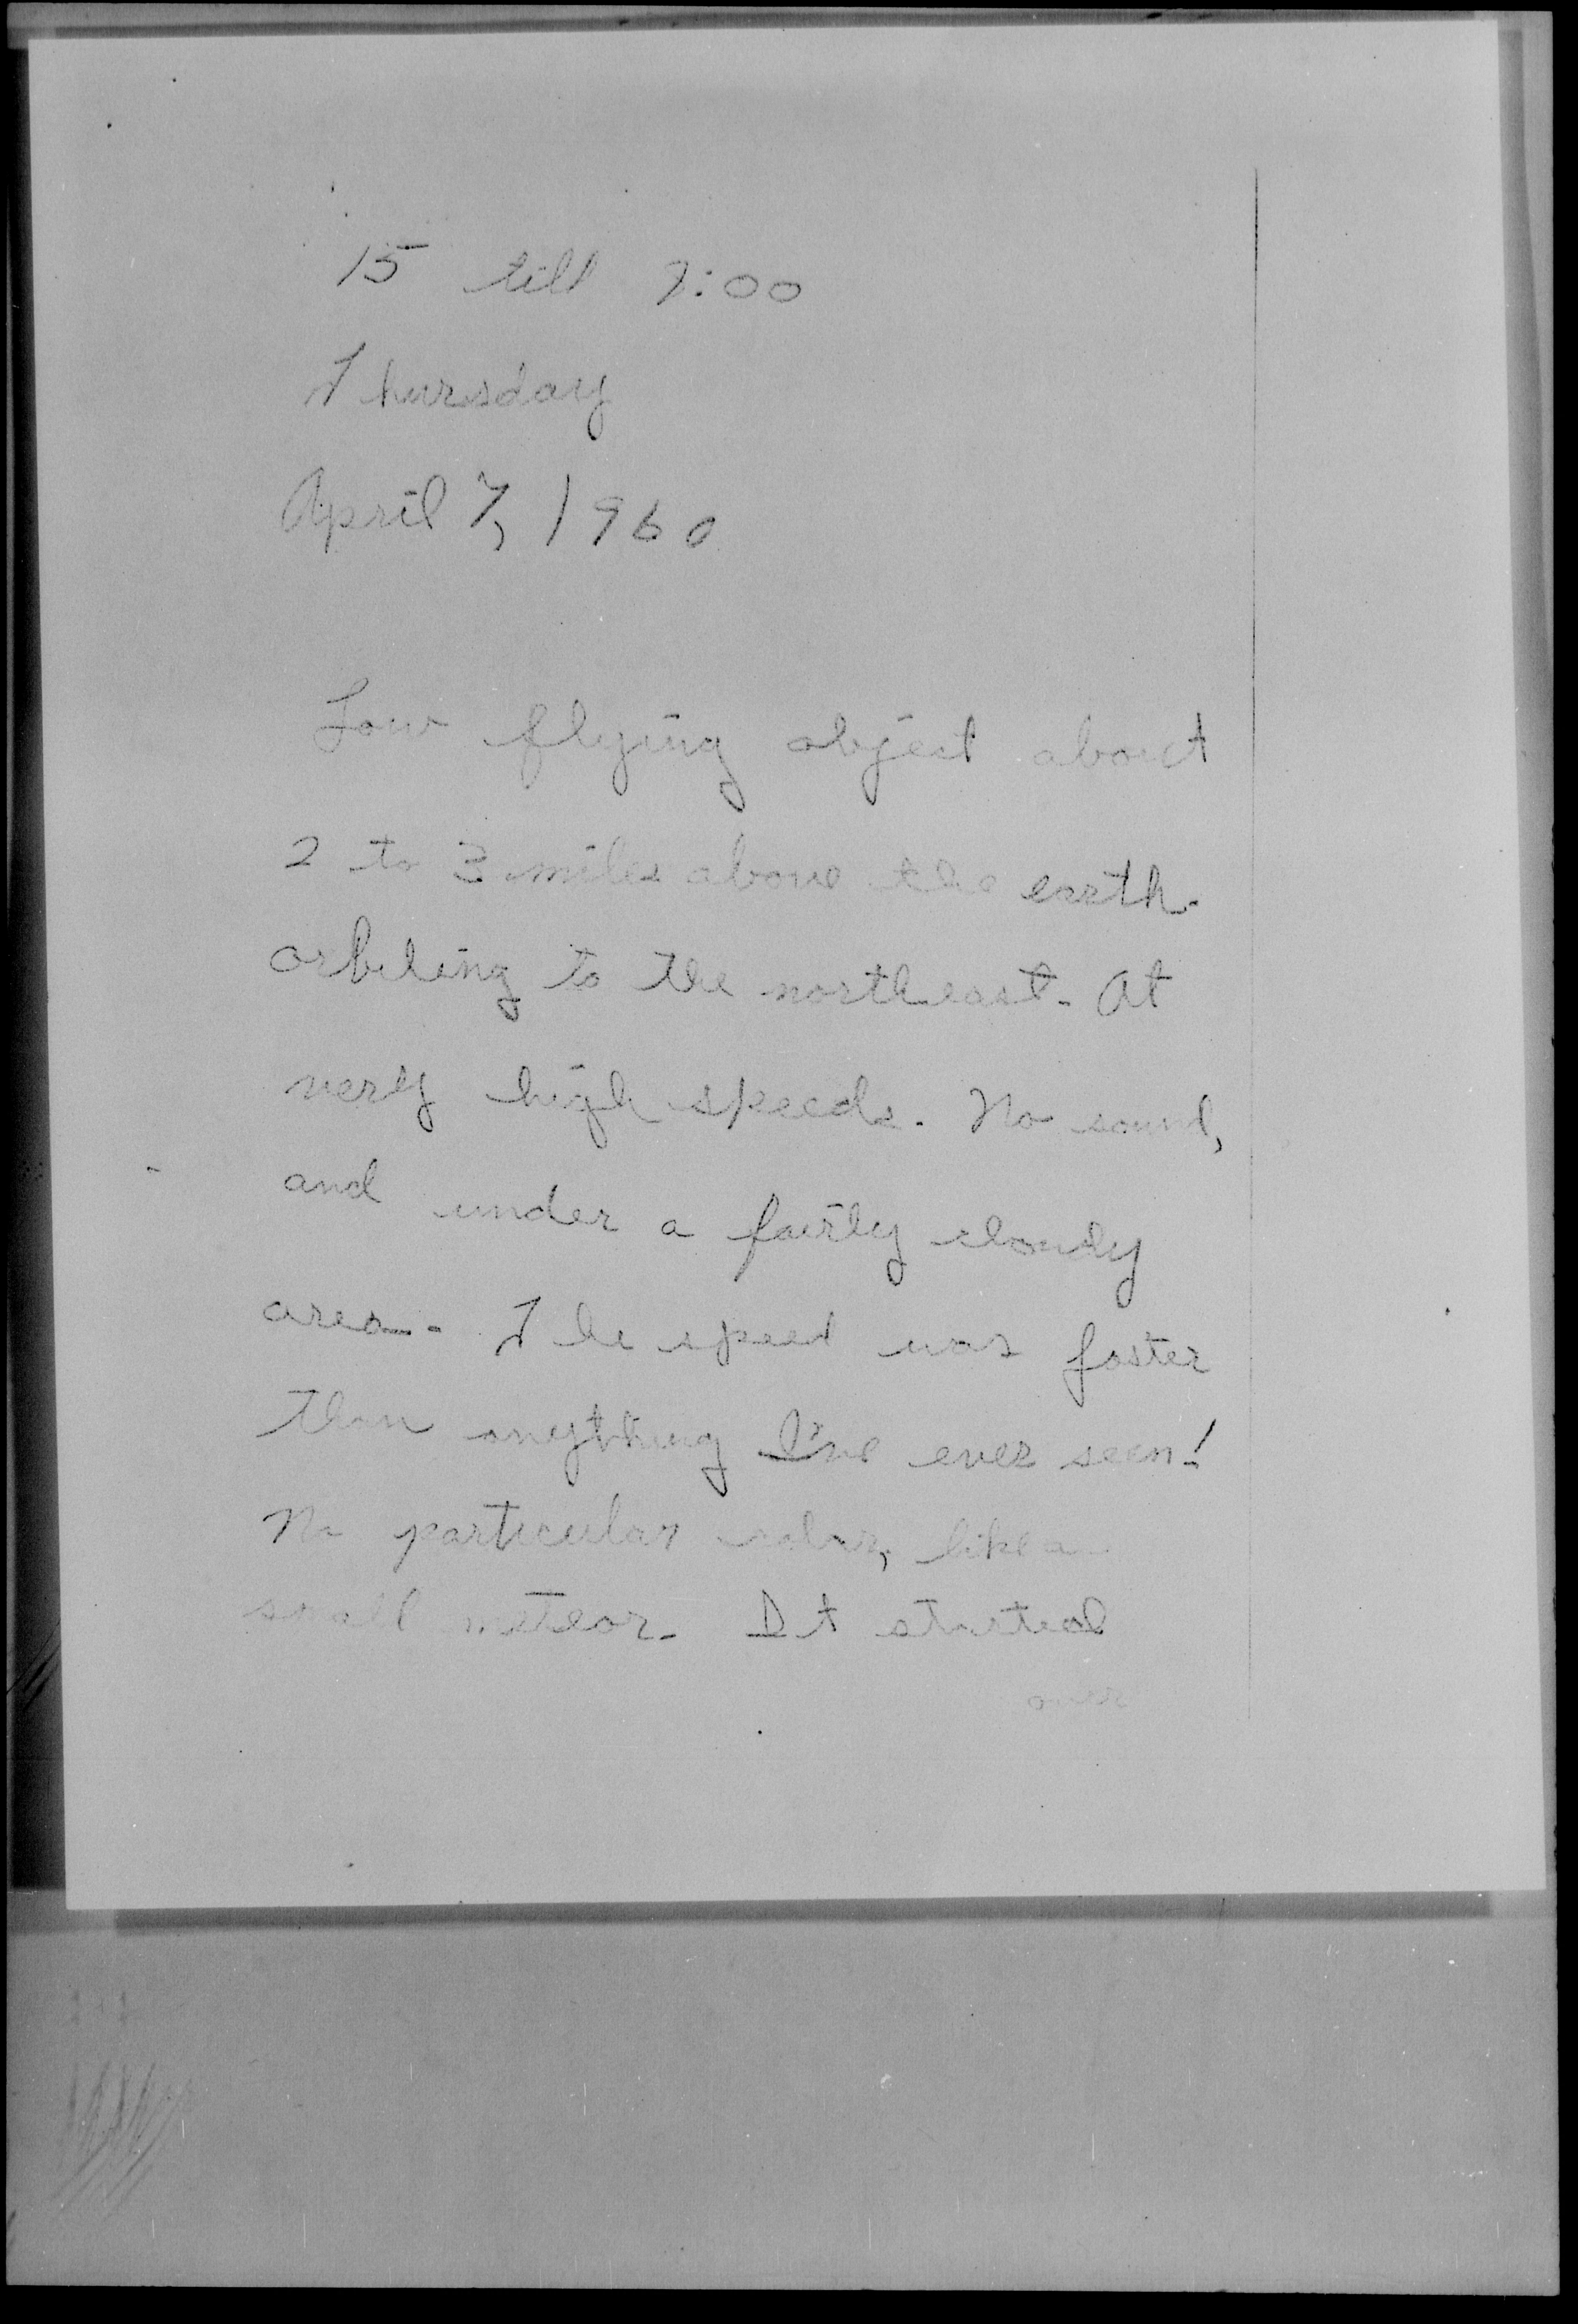 15 till 7:00
Thursday
April 7, 1960
Low flying object about
2 to 3 miles above the earth.
orbiting to the northeast. At
very high speeds. No sound,
and under a fairly cloudy
area. The speed was faster
than anything I've ever seen!
No particular color, like a
small meteor. It started
over